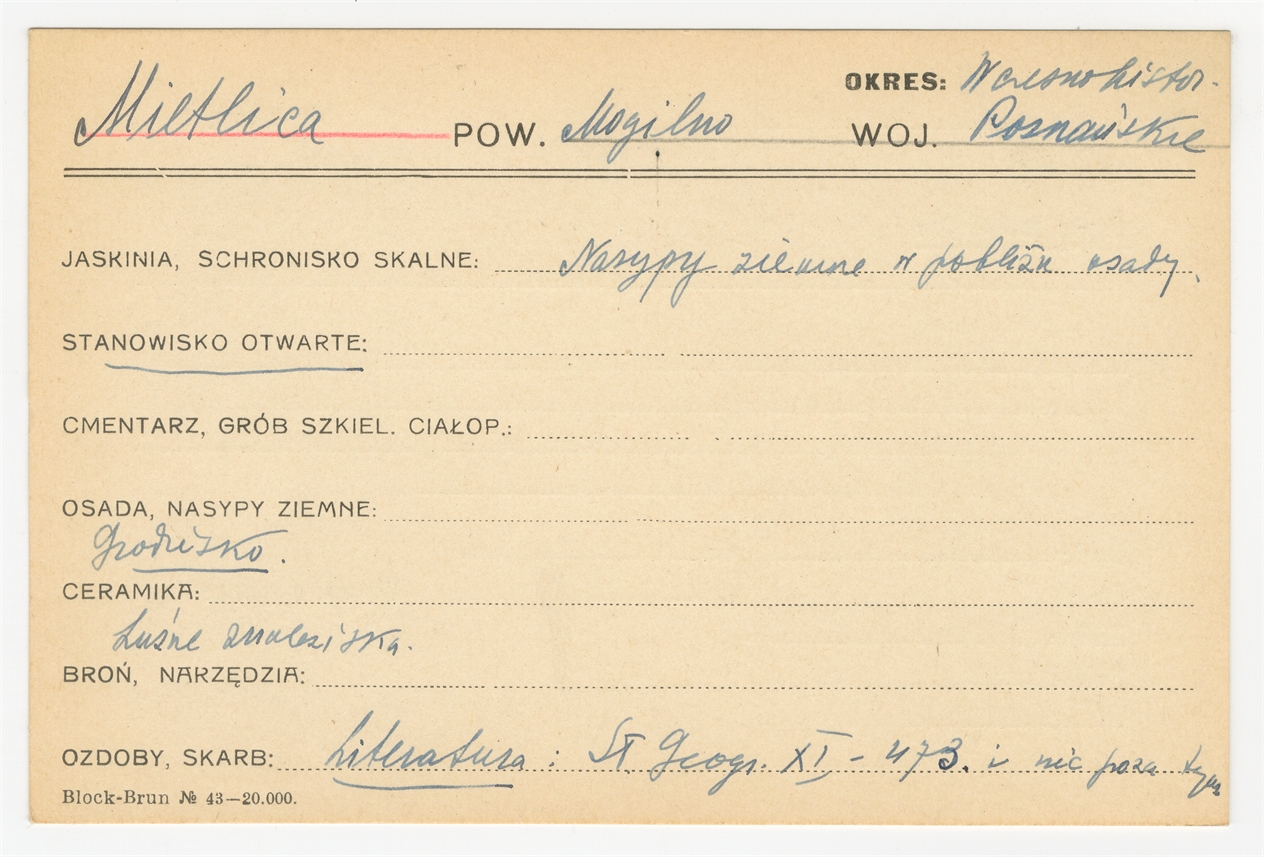 OKRES: Wczesnohistor.
Mietlica POW. Mogilno WOJ. Poznańskie
JASKINIA, SCHRONISKO SKALNE: Nasypy ziemne w pobliżu osady.
STANOWISKO OTWARTE:
CMENTARZ, GRÓB SZKIEL. CIAŁOP.:
OSADA, NASYPY ZIEMNE:
Grodzisko.
CERAMIKA:
Luźne znaleziska.
BROŃ, NARZĘDZIA:
OZDOBY, SKARB: Literatura: Sł Geogr. XI - 473. i nic poza tym
Block-Brun № 43—20.000.